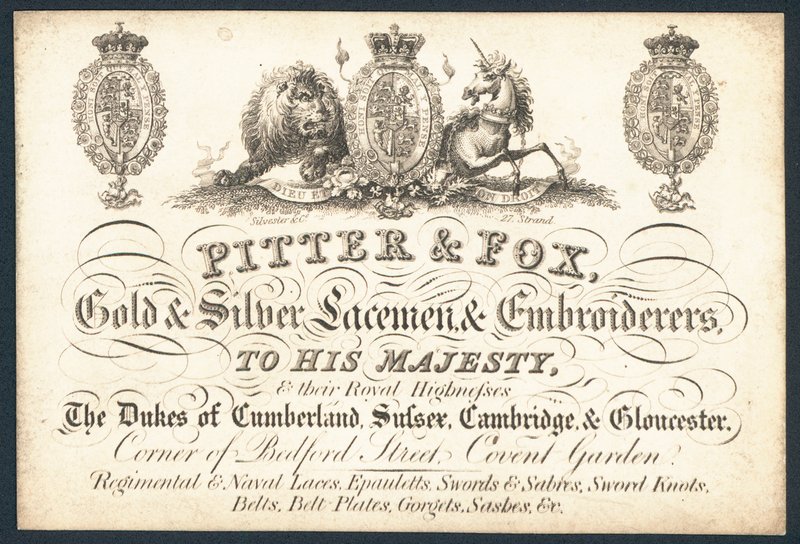 HONI SOIT QUI MAL Y PENSE
DIEU ET MON DROIT
Silvester & Co. 27, Strand.
PITTER & FOX,
Gold & Silver Lacemen, & Embroiderers,
TO HIS MAJESTY,
& their Royal Highneſses
The Dukes of Cumberland, Suſsex, Cambridge, & Gloucester.
Corner of Bedford Street, Covent Garden.
Regimental & Naval Laces, Epauletts, Swords & Sabres, Sword Knots,
Belts, Belt-Plates, Gorgets, Sashes, &c.